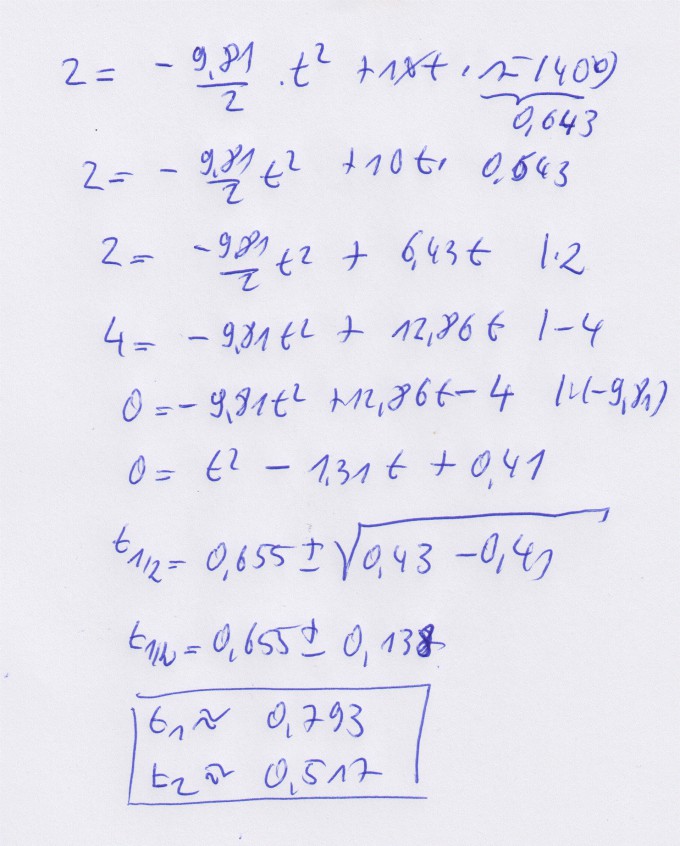 2 = - 9,81/2 · t² + 10t · sin(40°)
0,643
2 = - 9,81/2 t² + 10t · 0,643
2 = - 9,81/2 t² + 6,43t |·2
4 = - 9,81t² + 12,86t |-4
0 = - 9,81t² + 12,86t - 4 |:(-9,81)
0 = t² - 1,31t + 0,41
t1/2 = 0,655 ± √0,43 - 0,41
t1/2 = 0,655 ± 0,138
t1 ≈ 0,793
t2 ≈ 0,517